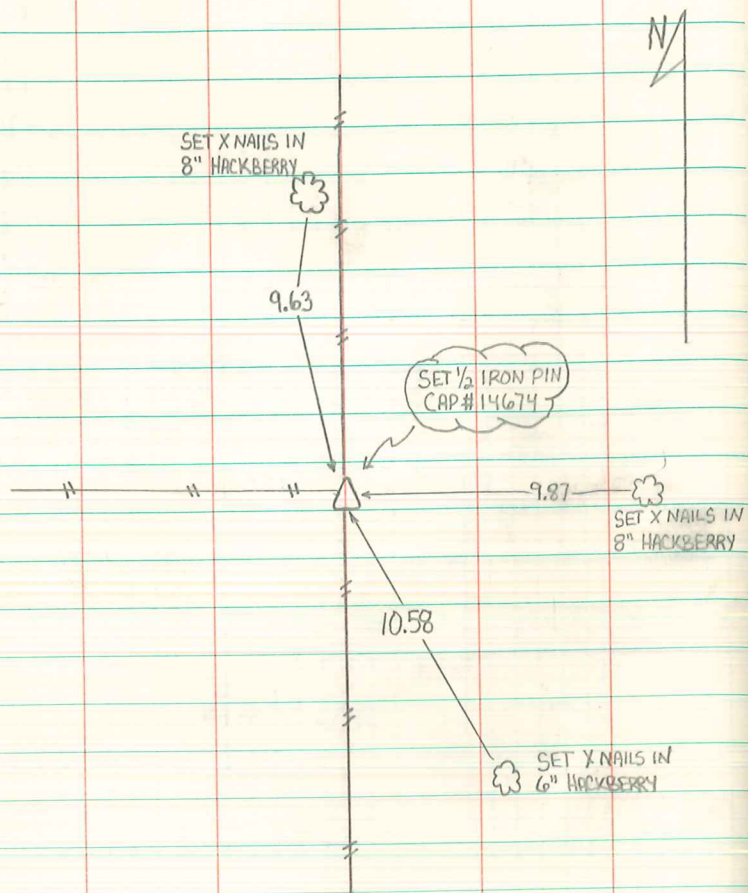 N
SET X NAILS IN
8" HACKBERRY
9.63
SET 1/2 IRON PIN
CAP # 14674
9.87
SET X NAILS IN
8" HACKBERRY
10.58
SET X NAILS IN
6" HACKBERRY